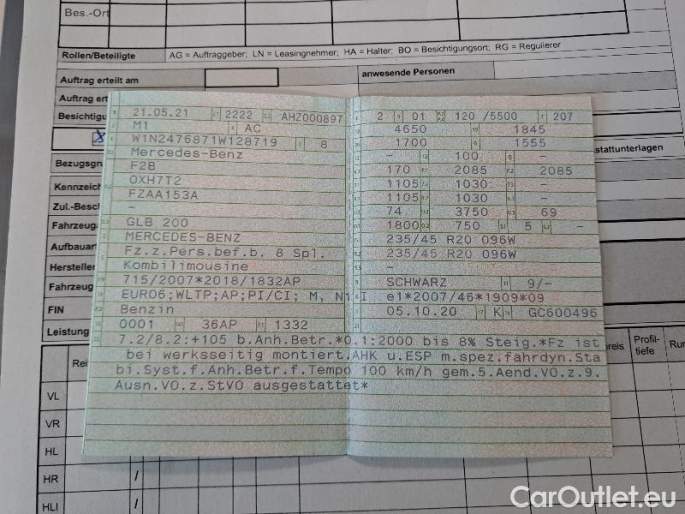 Bes.-Ort
Rollen/Beteiligte AG = Auftraggeber; LN = Leasingnehmer; HA = Halter; BO = Besichtigungsort; RG = Regulierer
Auftrag erteilt am anwesende Personen
Auftrag ert
Besichtigu
stattunterlagen
Bezugsgr
Kennzeich
Zul.-Besch
Fahrzeuga
Aufbauart
Hersteller
Fahrzeug
FIN
Leistung
21.05.21 2222 AHZ000897
M1 AC
W1N2476871W128719 8
Mercedes-Benz
F2B
OXH7T2
FZAA153A
-
GLB 200
MERCEDES-BENZ
Fz.z.Pers.bef.b. 8 Spl.
Kombilimousine
715/2007*2018/1832AP
EURO6;WLTP;AP;PI/CI; M, N1 I
Benzin
0001 36AP 1332
2 01 120 /5500 207
4650 1845
1700 1555
- 100 -
170 2085 2085
1105 1030 -
1105 1030 -
74 3750 69
1800 750 5 -
235/45 R20 096W
235/45 R20 096W
-
SCHWARZ 9/-
e1*2007/46*1909*09
05.10.20 K GC600496
7.2/8.2:+105 b.Anh.Betr.*0.1:2000 bis 8% Steig.*Fz ist
bei werksseitig montiert.AHK u.ESP m.spez.fahrdyn.Sta
bi.Syst.f.Anh.Betr.f.Tempo 100 km/h gem.5.Aend.VO.z.9.
Ausn.VO.z.StVO ausgestattet*
reis Profil-
tiefe Run
Rei
VL
VR
HL
HR /
HLI /
CarOutlet.eu